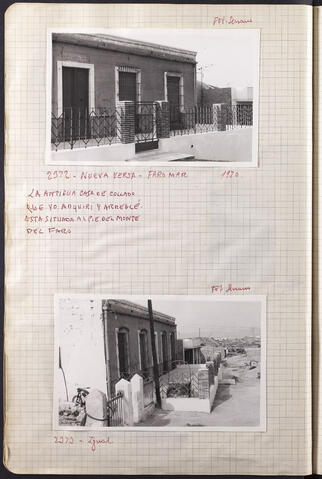 2972 - NUEVA VERJA - FARO MAR 1970.
LA ANTIGUA CASA DE COLLADO
QUE YO ADQUIRI Y ARREGLÉ.
ESTA SITUADA AL PIE DEL MONTE
DEL FARO
2973 - Igual